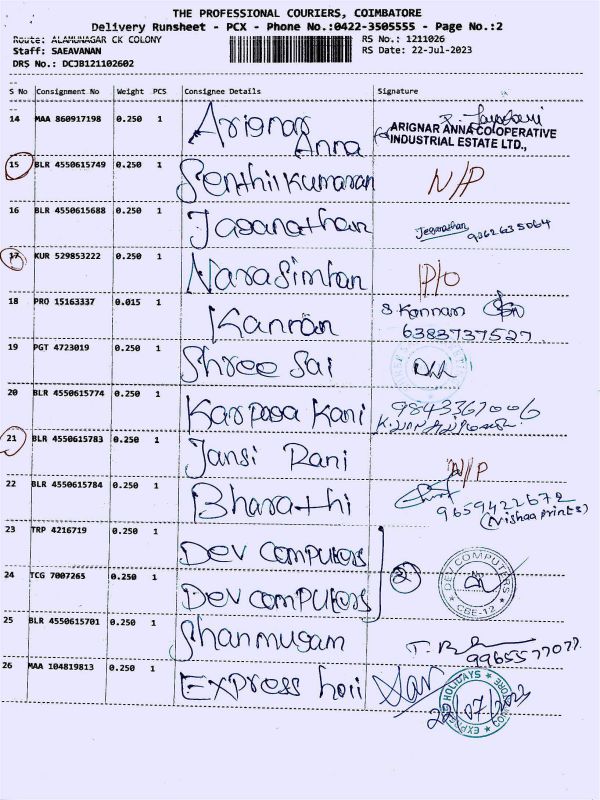 THE PROFESSIONAL COURIERS, COIMBATORE
Delivery Runsheet - PCX - Phone No.:0422-3505555 - Page No.:2
Route: ALAMUNAGAR CK COLONY RS No.: 1211026
Staff: SAEAVANAN RS Date: 22-Jul-2023
DRS No.: DCJB121102602
S No Consignment No Weight PCS Consignee Details Signature
14 MAA 860917198 0.250 1 Arignar Anna
ARIGNAR ANNA CO-OPERATIVE
INDUSTRIAL ESTATE LTD.,
15 BLR 4550615749 0.250 1 Senthilkumaran N/P
16 BLR 4550615688 0.250 1 Jaganathan Jeganathan 9362635064
17 KUR 529853222 0.250 1 Narasimhan P/O
18 PRO 15163337 0.015 1 Kannan S Kannan
6383737527
19 PGT 4723019 0.250 1 Shree Sai
20 BLR 4550615774 0.250 1 Karpaga Kani 9843367006
21 BLR 4550615783 0.250 1 Jansi Rani N/P
22 BLR 4550615784 0.250 1 Bharathi 9659422672
(Nishaa prints)
23 TRP 4216719 0.250 1 DEV COMPUTERS
24 TCG 7007265 0.250 1 DEV COMPUTERS 2 DEV COMPUTERS CBE-12
25 BLR 4550615701 0.250 1 Shanmugam 9965577077
26 MAA 104819813 0.250 1 EXPRESS holi
22/07/2023